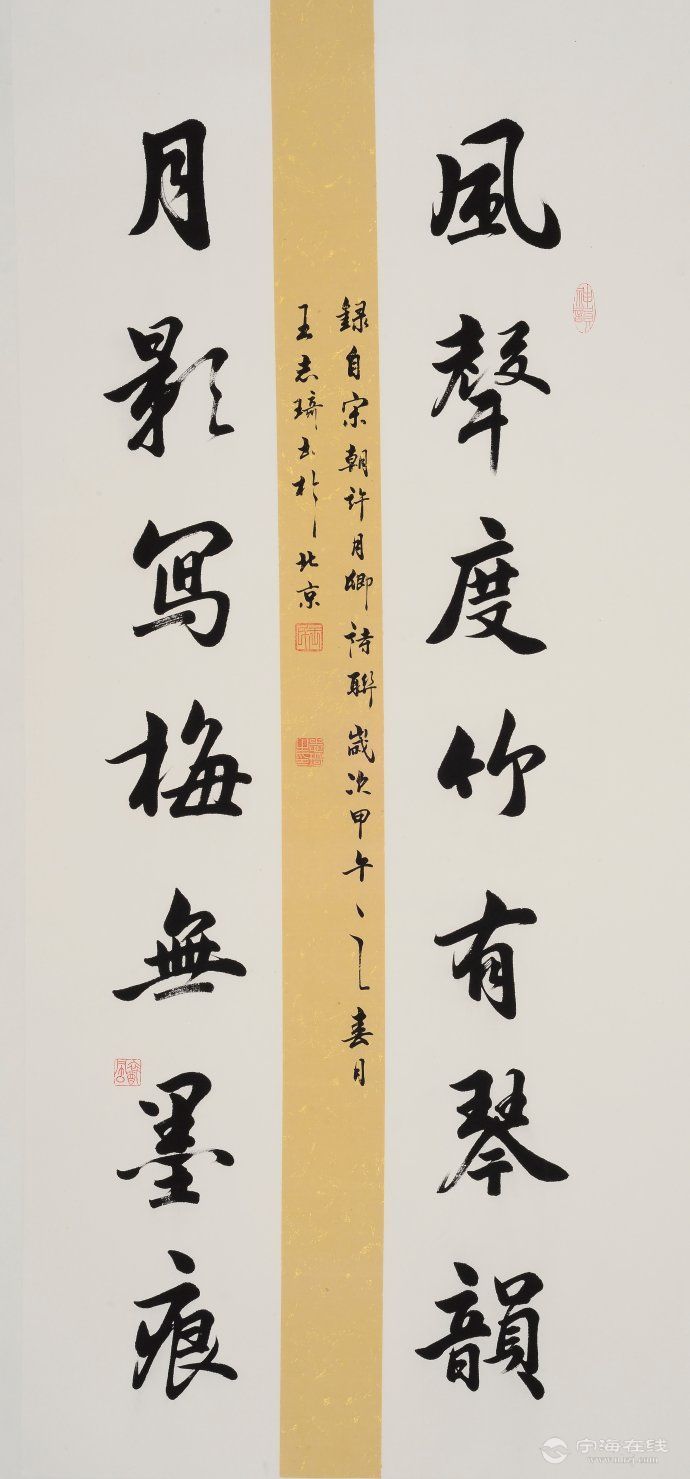 風聲度竹有琴韻
録自宋朝許月卿詩聯歲次甲午之春月
王志琦書於北京
月影寫梅無墨痕
宁海在线